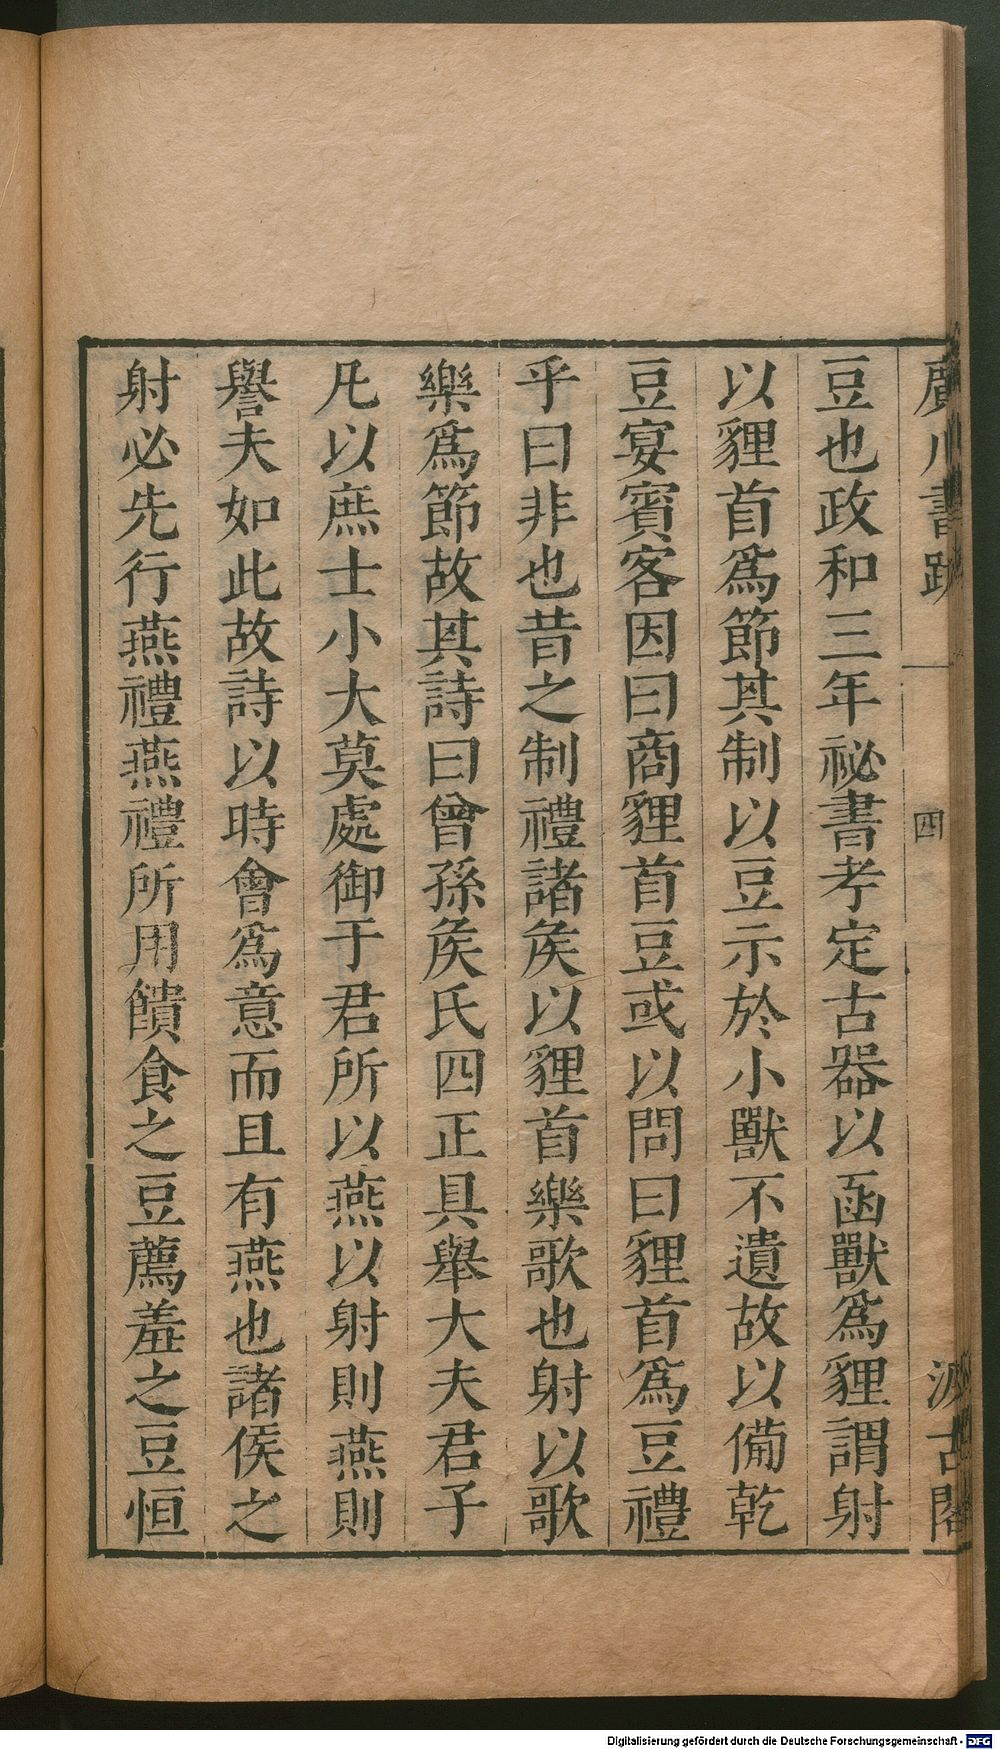 廣川書跋
四
汲古閣
豆也政和三年祕書考定古器以函獸爲貍謂射
以貍首爲節其制以豆示於小獸不遺故以備乾
豆宴賓客因曰商貍首豆或以問曰貍首爲豆禮
乎曰非也昔之制禮諸矦以貍首樂歌也射以歌
樂爲節故其詩曰曾孫矦氏四正具舉大夫君子
凡以庶士小大莫處御于君所以燕以射則燕則
譽夫如此故詩以時會爲意而且有燕也諸侯之
射必先行燕禮燕禮所用饋食之豆薦羞之豆恒
Digitalisierung gefördert durch die Deutsche Forschungsgemeinschaft - DFG